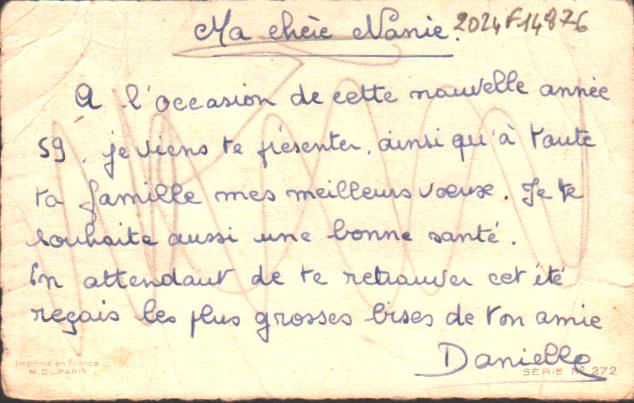 Ma chère Nanie.
2024F14876
A l'occasion de cette nouvelle année
59, je viens te présenter, ainsi qu'à toute
ta famille mes meilleurs vœux. Je te
souhaite aussi une bonne santé.
En attendant de te retrouver cet été
reçois les plus grosses bises de ton amie
Danielle
Imprimé en France
M.D. PARIS
SÉRIE Nº 272